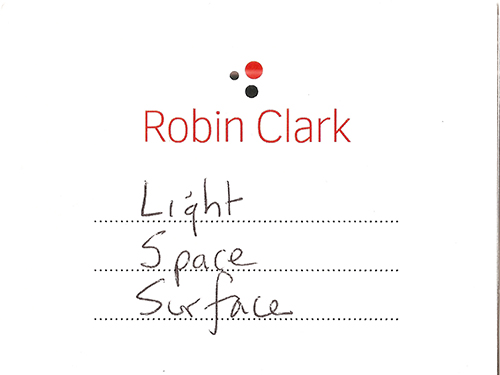 Robin Clark
Light
Space
Surface